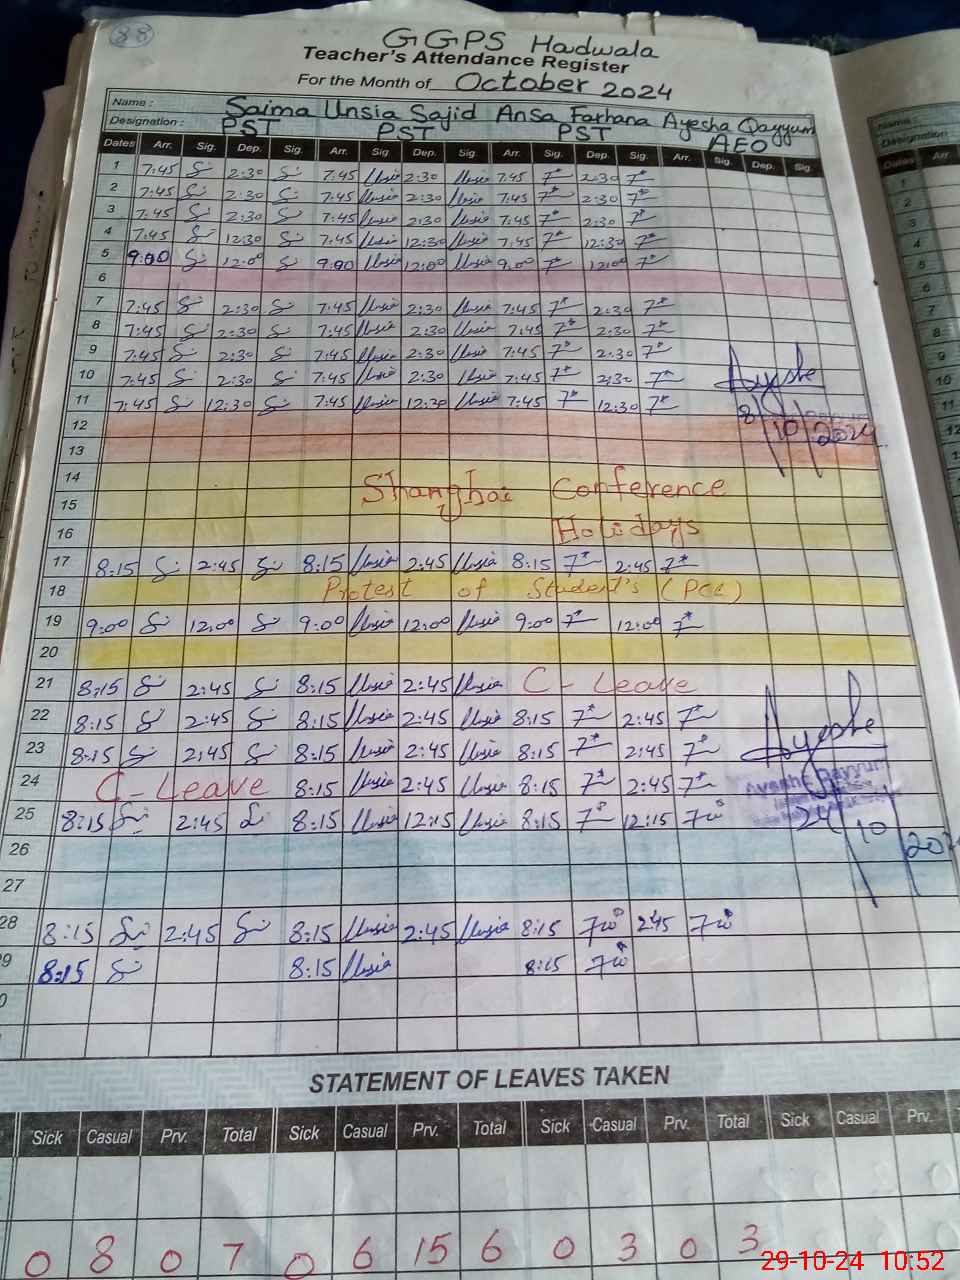 88
GGPS Hadwala
Teacher's Attendance Register
For the Month of October 2024
Name : Saima Unsia Sajid Ansa Farhana Ayesha Qayyum
Designation : PST PST PST AEO
Dates Arr. Sig. Dep. Sig. Arr. Sig. Dep. Sig. Arr. Sig. Dep. Sig. Arr. Sig. Dep. Sig.
1 7:45 2:30 7:45 Unsia 2:30 Unsia 7:45 2:30
2 7:45 2:30 7:45 Unsia 2:30 Unsia 7:45 2:30
3 7:45 2:30 7:45 Unsia 2:30 Unsia 7:45 2:30
4 7:45 12:30 7:45 Unsia 12:30 Unsia 7:45 12:30
5 9:00 12:00 9:00 Unsia 12:00 Unsia 9:00 12:00
6
7 7:45 2:30 7:45 Unsia 2:30 Unsia 7:45 2:30
8 7:45 2:30 7:45 Unsia 2:30 Unsia 7:45 2:30
9 7:45 2:30 7:45 Unsia 2:30 Unsia 7:45 2:30
10 7:45 2:30 7:45 Unsia 2:30 Unsia 7:45 2:30 Ayesha
11 7:45 12:30 7:45 Unsia 12:30 Unsia 7:45 12:30 8/10/2024
12
13
14 Shanghai Conference
15
16 Holidays
17 8:15 2:45 8:15 Unsia 2:45 Unsia 8:15 2:45
18 Protest of Student's (PCC)
19 9:00 12:00 9:00 Unsia 12:00 Unsia 9:00 12:00
20
21 8:15 2:45 8:15 Unsia 2:45 Unsia C- Leave
22 8:15 2:45 8:15 Unsia 2:45 Unsia 8:15 2:45
23 8:15 2:45 8:15 Unsia 2:45 Unsia 8:15 2:45 Ayesha
24 C- Leave 8:15 Unsia 2:45 Unsia 8:15 2:45 Ayesha Qayyum
25 8:15 2:45 8:15 Unsia 12:15 Unsia 8:15 12:15 24/10/202
26
27
28 8:15 2:45 8:15 Unsia 2:45 Unsia 8:15 2:45
9 8:15 8:15 Unsia 8:15
0
STATEMENT OF LEAVES TAKEN
Sick Casual Prv. Total Sick Casual Prv. Total Sick Casual Prv. Total Sick Casual Prv.
0 8 0 7 0 6 15 6 0 3 0 3
29-10-24 10:52
Name :
Designation
Dates Arr
1
2
3
4
5
6
7
8
9
10
11
12